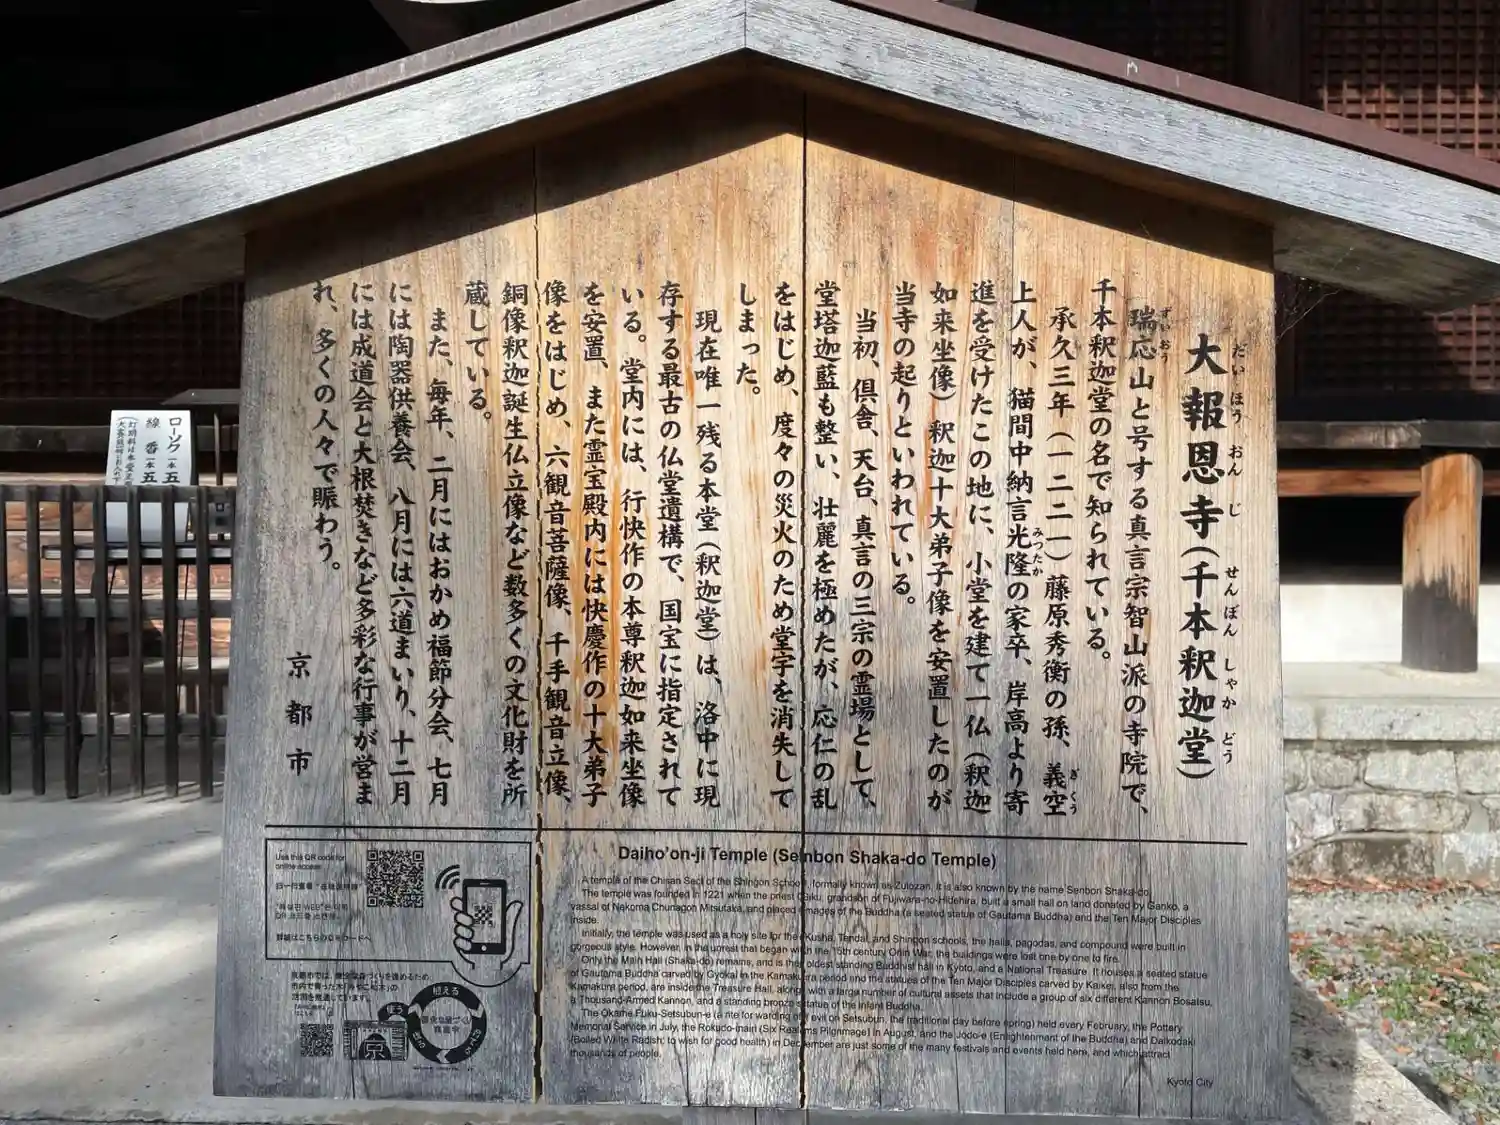 大報恩寺（千本釈迦堂）
だいほうおんじ せんぼんしゃかどう
瑞応山と号する真言宗智山派の寺院で、
ずいおう
千本釈迦堂の名で知られている。
承久三年（一二二一）藤原秀衡の孫、義空
ぎくう
上人が、猫間中納言光隆の家卒、岸高より寄
みつたか
進を受けたこの地に、小堂を建て一仏（釈迦
如来坐像）釈迦十大弟子像を安置したのが
当寺の起りといわれている。
当初、倶舎、天台、真言の三宗の霊場として、
堂塔迦藍も整い、壮麗を極めたが、応仁の乱
をはじめ、度々の災火のため堂宇を消失して
しまった。
現在唯一残る本堂（釈迦堂）は、洛中に現
存する最古の仏堂遺構で、国宝に指定されて
いる。堂内には、行快作の本尊釈迦如来坐像
を安置、また霊宝殿内には快慶作の十大弟子
像をはじめ、六観音菩薩像、千手観音立像、
銅像釈迦誕生仏立像など数多くの文化財を所
蔵している。
また、毎年、二月にはおかめ福節分会、七月
には陶器供養会、八月には六道まいり、十二月
には成道会と大根焚きなど多彩な行事が営ま
れ、多くの人々で賑わう。
京都市
Daiho'on-ji Temple (Senbon Shaka-do Temple)
A temple of the Chisan Sect of the Shingon School, formally known as Zuiozan. It is also known by the name Senbon Shaka-do.
The temple was founded in 1221 when the priest Giku, grandson of Fujiwara-no-Hidehira, built a small hall on land donated by Ganko, a
vassal of Nekoma Chunagon Mitsutaka, and placed images of the Buddha (a seated statue of Gautama Buddha) and the Ten Major Disciples
inside.
Initially, the temple was used as a holy site for the Kusha, Tendai, and Shingon schools, the halls, pagodas, and compound were built in
gorgeous style. However, in the unrest that began with the 15th century Onin War, the buildings were lost one by one to fire.
Only the Main Hall (Shaka-do) remains, and is the oldest standing Buddhist hall in Kyoto, and a National Treasure. It houses a seated statue
of Gautama Buddha carved by Gyokai in the Kamakura period and the statues of the Ten Major Disciples carved by Kaikei, also from the
Kamakura period, are inside the Treasure Hall, along with a large number of cultural assets that include a group of six different Kannon Bosatsu,
a Thousand-Armed Kannon, and a standing bronze statue of the infant Buddha.
The Okame Fuku-Setsubun-e (a rite for warding off evil on Setsubun, the traditional day before spring) held every February, the Pottery
Memorial Service in July, the Rokudo-mairi (Six Realms Pilgrimage) in August, and the Jodo-e (Enlightenment of the Buddha) and Daikodaki
(Boiled White Radish; to wish for good health) in December are just some of the many festivals and events held here, and which attract
thousands of people.
Kyoto City
Use this QR code for
online access
詳細はこちらのQRコードへ
京都市では、健全な森づくりを進めるため、
市内で育った木「みやこ杣木」の
活用を推進しています。
植える
使う
京
ローソク 一本 五
線香 一本 五